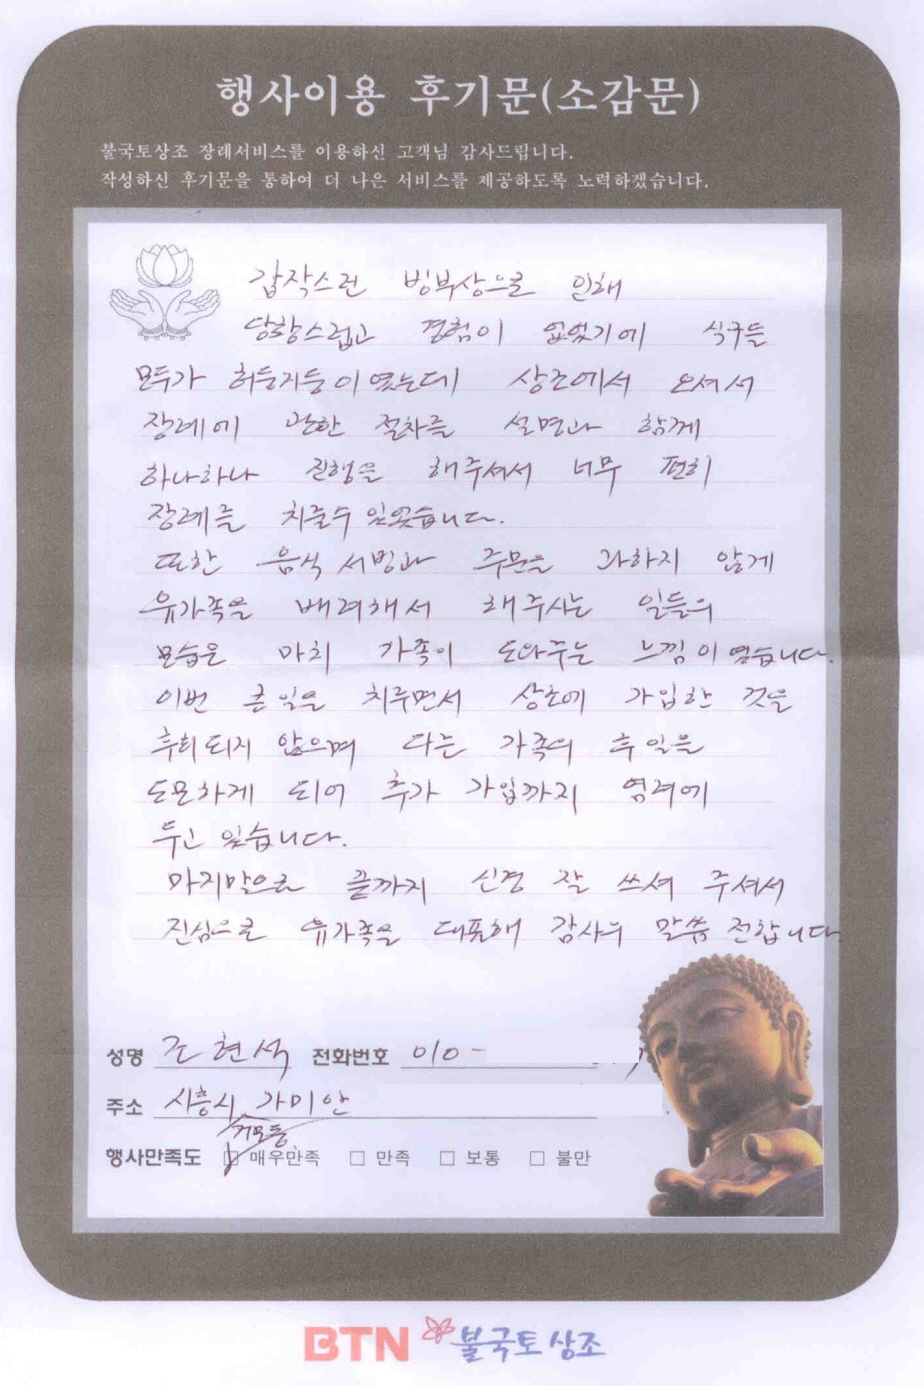 행사이용 후기문(소감문)
불국토상조 장례서비스를 이용하신 고객님 감사드립니다.
작성하신 후기문을 통하여 더 나은 서비스를 제공하도록 노력하겠습니다.
갑작스런 빙부상으로 인해
당황스럽고 경험이 없었기에 식구들
모두가 허둥지둥이였는데 상조에서 오셔서
장례에 관한 절차를 설명과 함께
하나하나 진행을 해주셔서 너무 편히
장례를 치룰수 있었습니다.
또한 음식 서빙과 주문을 과하지 않게
유가족을 배려해서 해주시는 일들의
모습은 마치 가족이 도와주는 느낌이였습니다.
이번 큰일을 치루면서 상조에 가입한 것을
후회되지 않으며 다른 가족의 후일을
도모하게 되어 추가 가입까지 염려에
두고 있습니다.
마지막으로 끝까지 신경 잘 쓰셔 주셔서
진심으로 유가족을 대표해 감사의 말씀 전합니다
성명 조현석 전화번호 010-
주소 시흥시
거모동
행사만족도 □ 매우만족 □ 만족 □ 보통 □ 불만
BTN 불국토상조